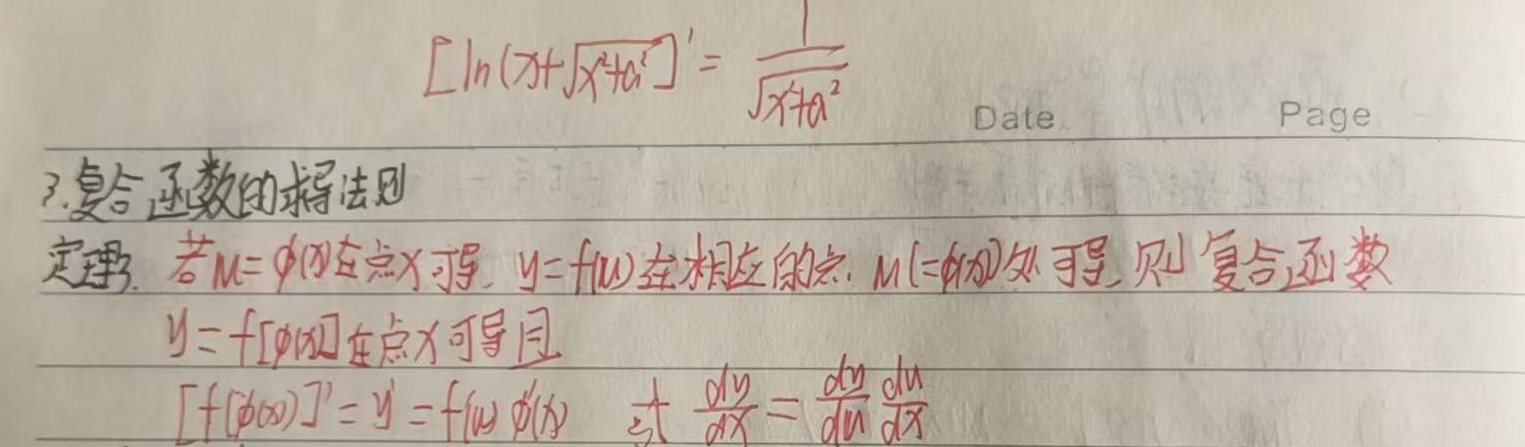 [ln(x+√(x²+a²)]' = 1/√(x²+a²)
Date Page
3.复合函数的求导法则
定理3. 若u=φ(x)在点x可导, y=f(u)在相应的点. u(=φ(x))处可导, 则复合函数
y=f[φ(x)]在点x可导且
[f(φ(x))]'=y'=f(u) φ'(x) 或 dy/dx = dy/du du/dx